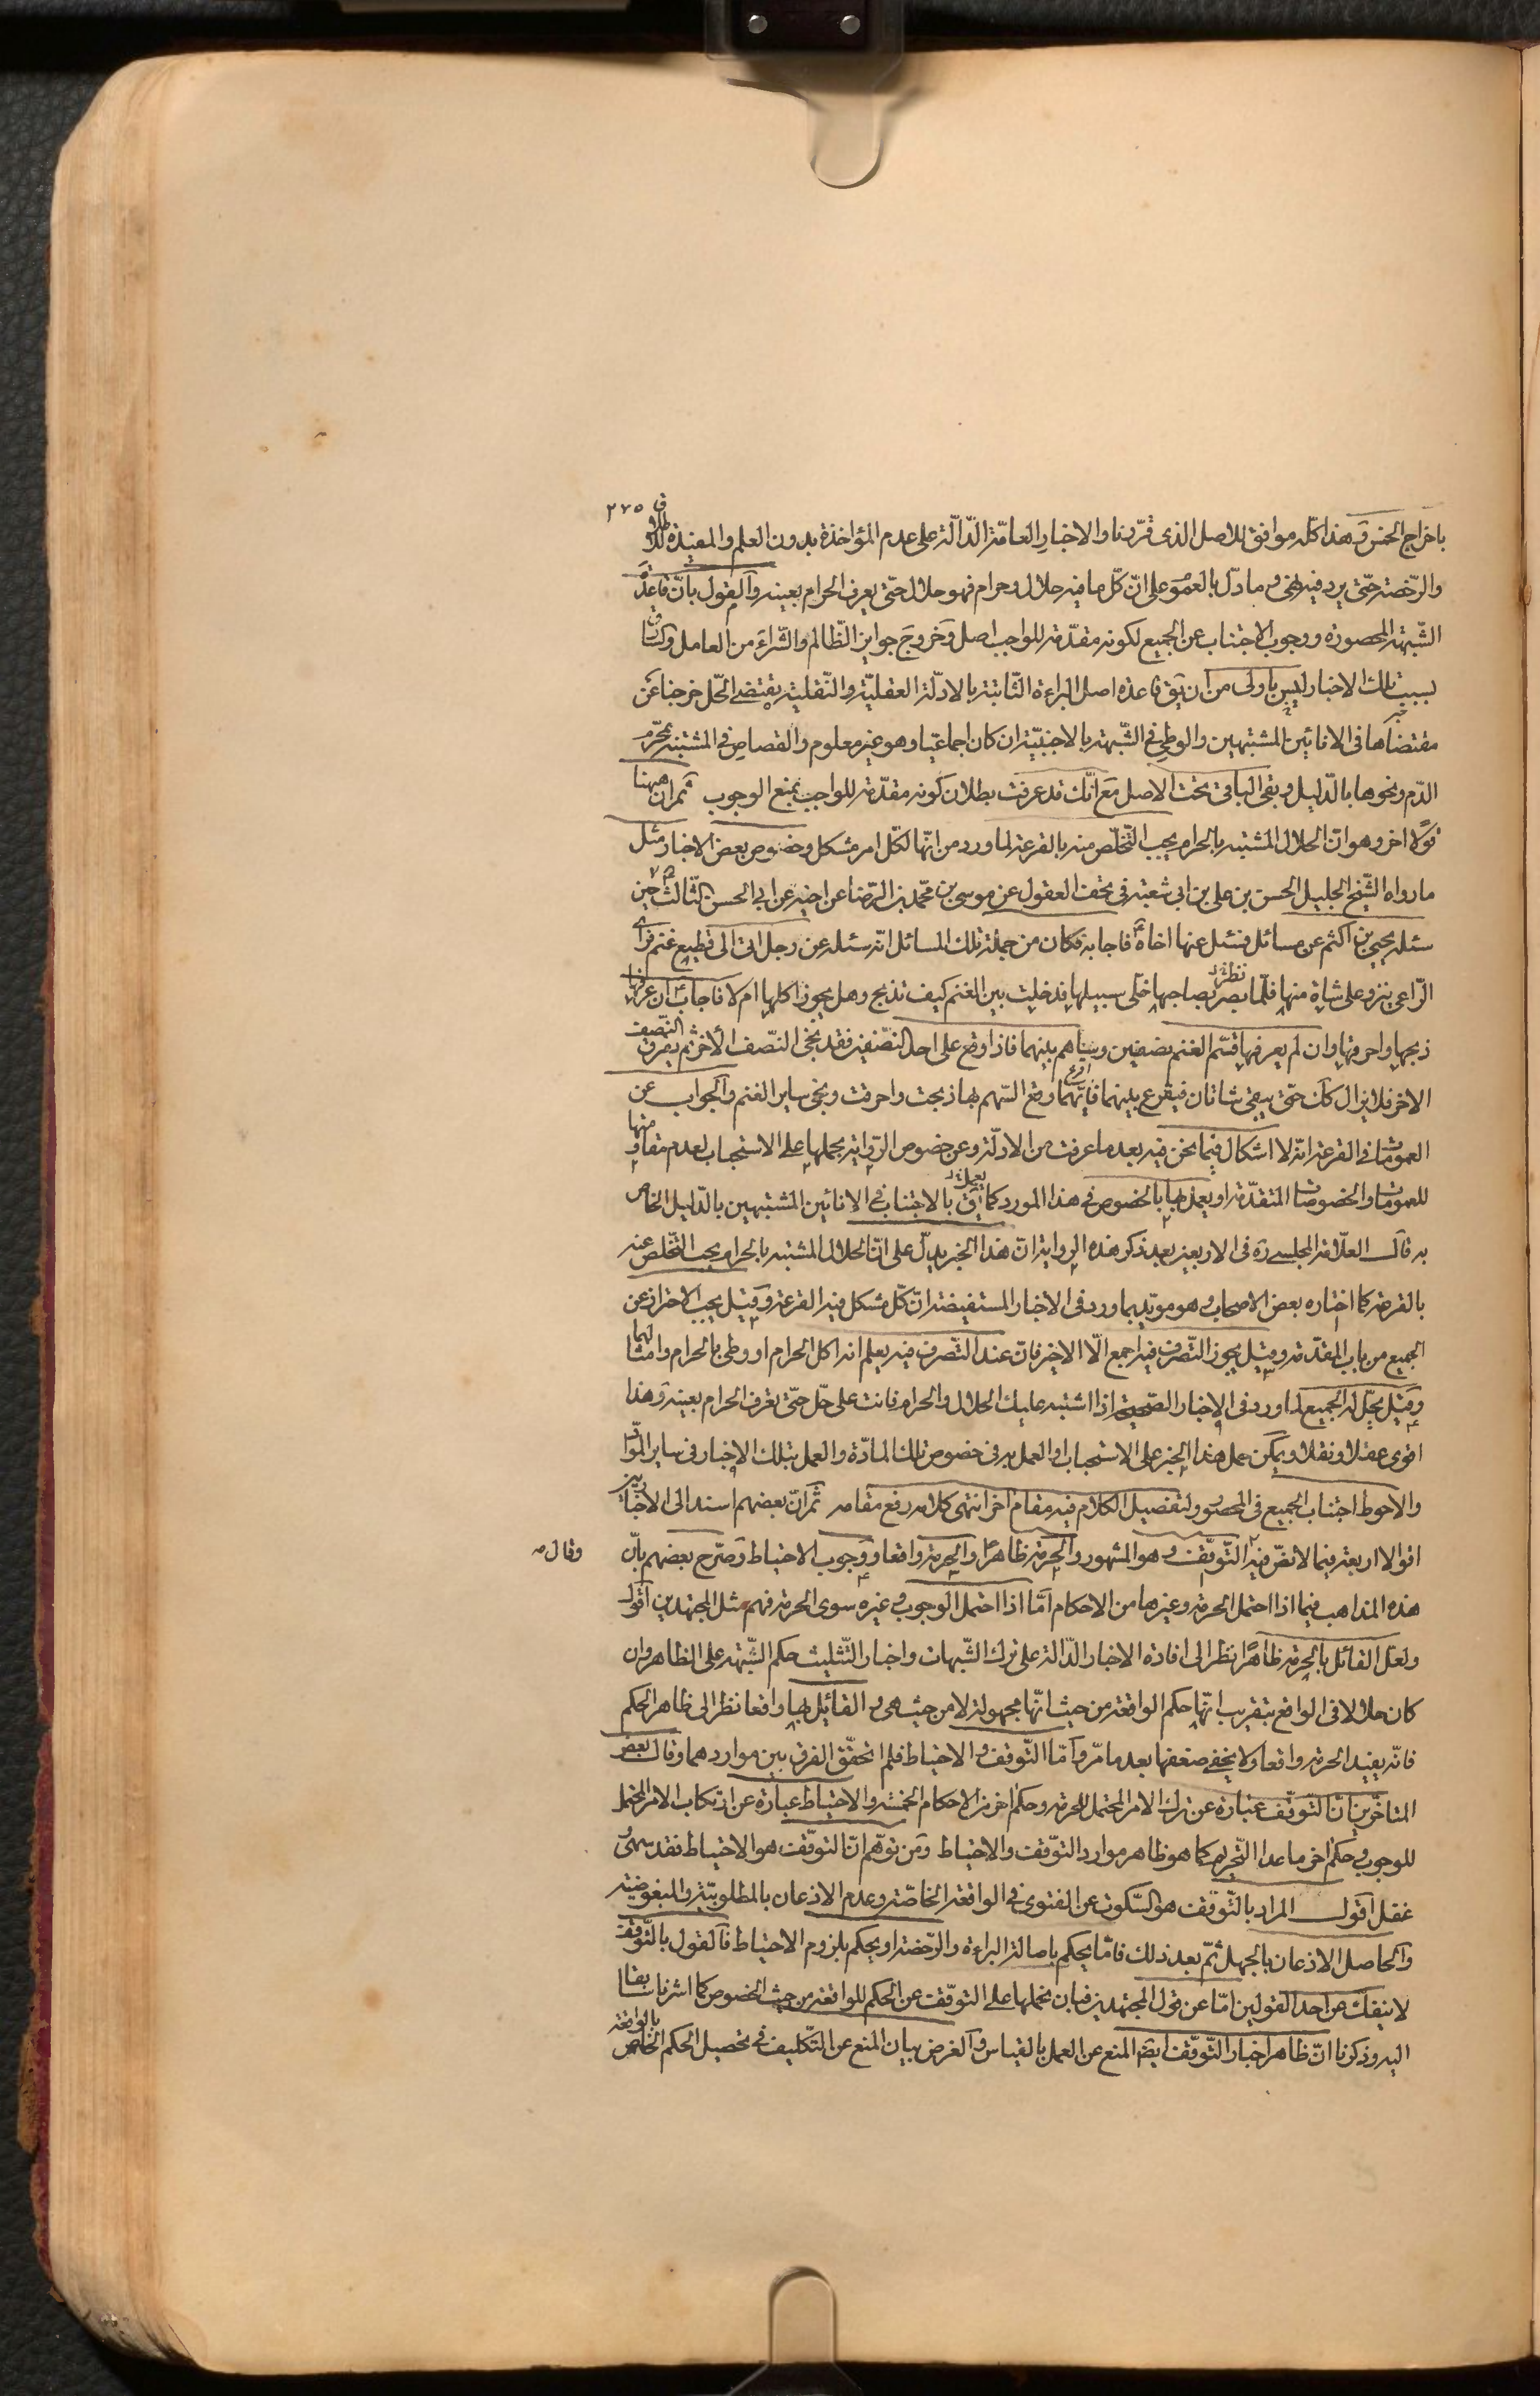 ٢٧٥
باخراج الخمس وهذا كلّه موافق للاصل الذى قرّرنا والاخبار العامّة الدّالّة على عدم المؤاخذة بدون العلم والمفيدة للاطلاق
والرّخصة حتّى يرد فيه نهى وما دلّ بالعموم على انّ كلّ ما فيه حلال وحرام فهو حلال حتّى يعرف الحرام بعينه والقول بانّ قاعدة
الشّبهة المحصورة ووجوب الاجتناب عن الجميع لكونه مقدّمة للواجب اصل وخروج جوايز الظّالم والشّراء من العامل والسّارق
بسبب تلك الاخبار ليس باولى من ان يق قاعدة اصل البراءة الثّابتة بالادلّة العقليّة والنّقلية يقتضى الحّل خرجنا عن
مقتضاها فى الانائين المشتبهين والوطى فى الشّبهة بالاجنبيّة ان كان اجماعيّا وهو غير معلوم والقصاص فى المشتبه بمحرّم
الدّم ونحوها بالدّليل وبقى الباقى تحت الاصل مع انّك قد عرفت بطلان كونه مقدّمة للواجب بمنع الوجوب ثمّ ان هيهنا
قولا اخر وهو انّ الحلال المشتبه بالحرام يجب التّخلّص منه بالقرعة لما ورد من انّها لكلّ امر مشكل وخصوص بعض الاخبار مثل
ما رواه الشّيخ الجليل الحسن بن على بن ابى شعبة فى تحف العقول عن موسى بن محمّد بن الرّضا عن اخيه عن ابى الحسن الثّالث ع حين
سئله يحيى بن اكثم عن مسائل فسئل عنها اخاه ع فاجابه فكان من جملة تلك المسائل انّه سئله عن رجل اتى الى قطيع غنم فراى
الرّاعى ينزو على شاة منها فلمّا بصر بصاحبها خلى سبيلها فدخلت بين الغنم كيف تذبح وهل يجوز اكلها ام لا فاجاب ع ان عرفها
ذبحها واحرقها وان لم يعرفها قسّم الغنم نصفين وساهم بينهما فاذا وقع على احد النّصفين فقد نجى النصف الأخر ثم يفرق النّصف
الاخر فلا يزال كك حتّى يبقى شاتان فيقرع بينهما فايّهما وقع السّهم بها ذبحت واحرقت ونجى ساير الغنم والجواب عن
العمومات فى القرعة انّه لا اشكال فيما نحن فيه بعد ما عرفت من الادلّة وعن خصوص الرّواية بحملها على الاستحباب لعدم مقاومتها
للعمومات والخصوصات المتقدّمة او يعمل بها بالخصوص فى هذا المورد كما يق بالاجتناب فى الانائين المشتبهين بالدّليل الخاص
به قال العلّامة المجلسى ره فى الاربعين بعد ذكر هذه الرواية انّ هذا الخبر يدلّ على انّ الحلال المشتبه بالحرام يجب التّخلص عنه
بالقرعة كما اختاره بعض الاصحاب وهو مويّد بما ورد فى الاخبار المستفيضة انّ كلّ مشكل فيه القرعة وقيل يجب الاحتراز عن
الجميع من باب المقدّمة وقيل يجوز التّصرف فيه اجمع الّا الاخير فانّ عند التّصرف فيه يعلم انه اكل الحرام او وطى بالحرام وامثالهما
وقيل يحلّ له الجميع لما ورد فى الاخبار الصّحيحة اذا اشتبه عليك الحلال والحرام فانت على حلّ حتّى تعرف الحرام بعينه وهذا
اقوى عقلا ونقلا ويمكن حمل هذا الخبر على الاستحباب او العمل به فى خصوص تلك المادّة والعمل بتلك الاخبار فى ساير الموادّ
والاحوط اجتناب الجميع فى المحصور ولتفصيل الكلام فيه مقام اخر انتهى كلامه رفع مقامه ثمّ انّ بعضهم اسند الى الاخباريين
اقوالا اربعة فيما لا نصّ فيه التّوقّف وهو المشهور والحرمة ظاهرا والحرمة واقعا ووجوب الاحتياط وصرّح بعضهم بانّ
وقال
هذه المذاهب فيما اذا احتمل الحرمة وغيرها من الاحكام امّا اذا احتمل الوجوب وغيره سوى الحرمة فهم مثل المجتهدين اقول
ولعل القائل بالحرمة ظاهرا نظر الى افادة الاخبار الدّالة على ترك الشّبهات واخبار التّثليث حكم الشّبهة على الظاهر وان
كان حلالا فى الواقع بتقريب انّها حكم الواقعة من حيث انّها مجهولة لا من حيث هى هى والقائل بها واقعا نظر الى ظاهر الحكم
فانّه يفيد الحرمة واقعا ولا يخفى ضعفها بعد ما مرّ وامّا التّوقف والاحتياط فلم اتحقّق الفرق بين مواردهما وقال بعض
المتاخّرين انّ التّوقّف عبارة عن ترك الامر المحتمل للحرمة وحكم اخر من الاحكام الخمسة والاحتياط عبارة عن ارتكاب الامر المحتمل
للوجوب وحكم اخر ما عدا التّحريم كما هو ظاهر موارد التّوقّف والاحتياط ومن توهّم انّ التوقّف هو الاحتياط فقد سهى و
غفل اقول المراد بالتّوقّف هو السّكوت عن الفتوى فى الواقعة الخاصّة وعدم الاذعان بالمطلوبيّة والمبغوضية
والحاصل الاذعان بالجهل ثمّ بعد ذلك فامّا يحكم باصالة البراءة والرّخصة او يحكم بلزوم الاحتياط فالقول بالتّوقف
لا ينفك عن احد القولين امّا عن قول المجتهدين فبان نحملها على التوقّف عن الحكم للواقعة من حيث الخصوص كما اشرنا سابقا
اليه وذكرنا انّ ظاهر اخبار التّوقّف ايضا المنع عن العمل بالقياس والغرض بيان المنع عن التّكليف فى تحصيل الحكم الخاص بالواقعة